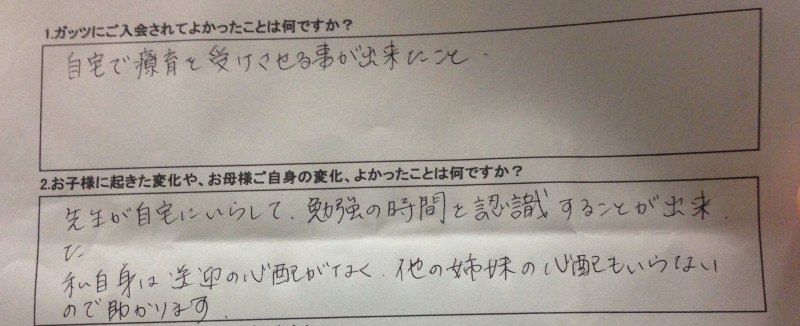 1.ガッツにご入会されてよかったことは何ですか？
自宅で療育を受けさせる事が出来たこと.
2.お子様に起きた変化や、お母様ご自身の変化、よかったことは何ですか？
先生が自宅にいらして、勉強の時間と認識することが出来
た
私自身は送迎の心配がなく、他の姉妹の心配もいらない
ので助かります.